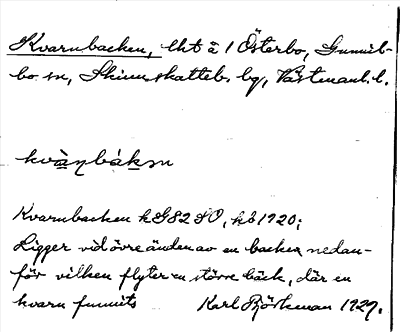 Kvarnbacken, lht å 1 Österbo, Gunnils-
bo sn, Skinnskattebs. bg, Västmanl. l.
kvà̱ṉbáḵṉ
Kvarnbacken kG82SO, kb 1920;
Ligger vid övre änden av en backe, nedan-
för vilken flyter en större bäck, där en
kvarn funnits Karl Björkman 1927.